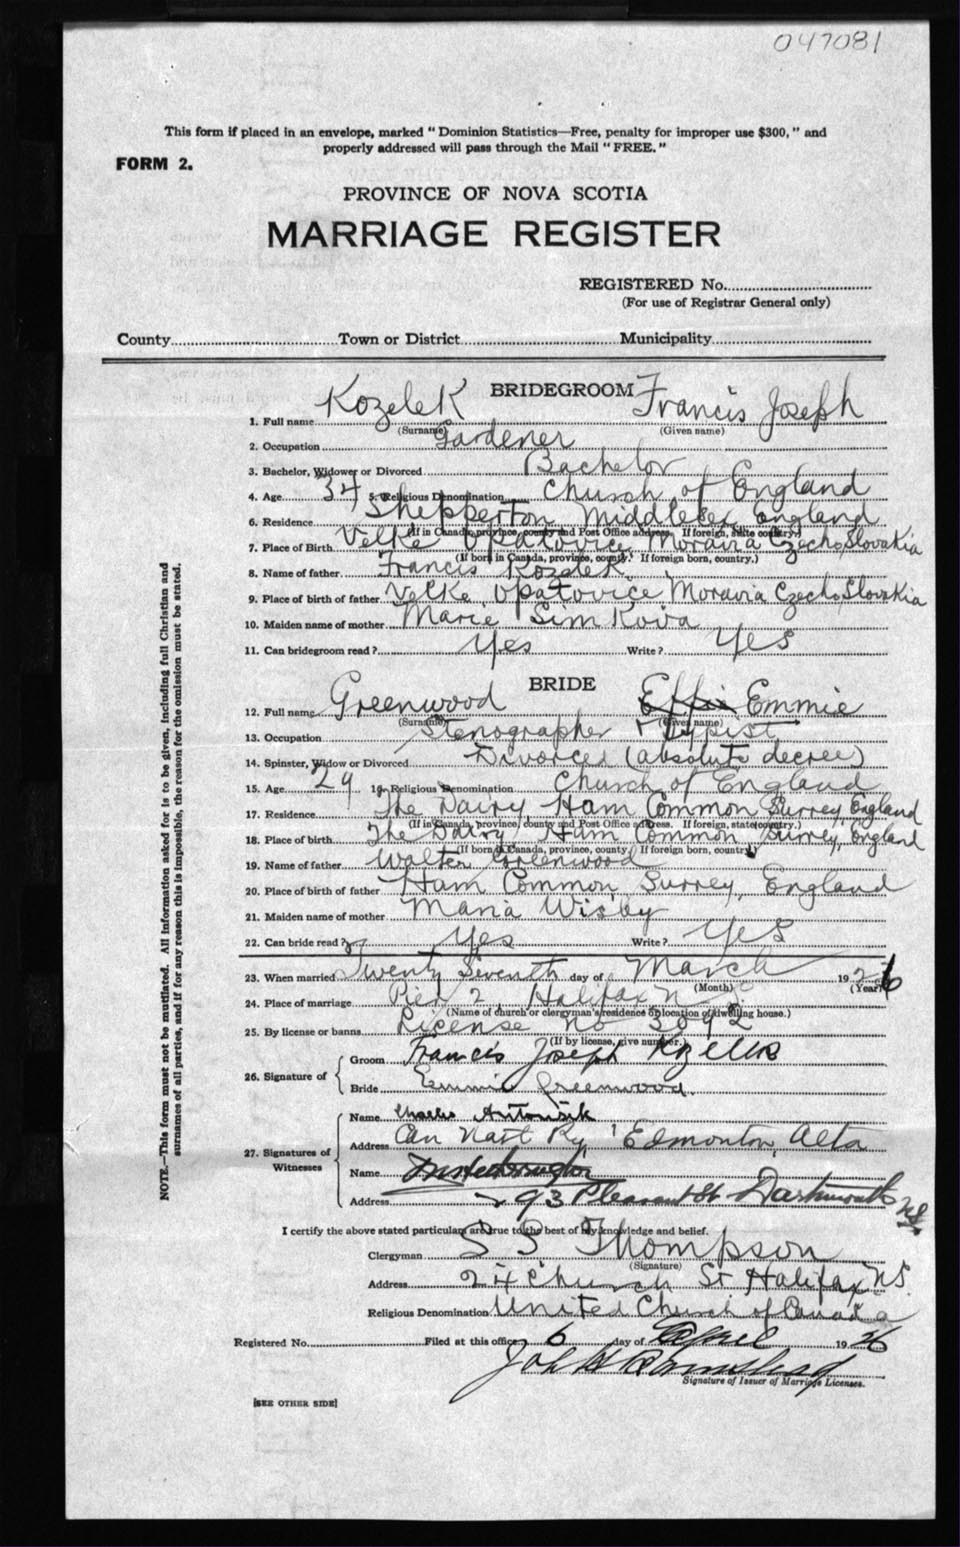 047081
This form if placed in an envelope, marked "Dominion Statistics—Free, penalty for improper use $300," and
properly addressed will pass through the Mail "FREE."
FORM 2.
PROVINCE OF NOVA SCOTIA
MARRIAGE REGISTER
REGISTERED No.
(For use of Registrar General only)
County Town or District Municipality
BRIDEGROOM
1. Full name Kozelek Francis Joseph
(Surname) (Given name)
2. Occupation Gardener
3. Bachelor, Widower or Divorced Bachelor
4. Age 34 5. Religious Denomination Church of England
6. Residence Shepperton Middlesex England
(If in Canada, province, county and Post Office address. If foreign, state country.)
7. Place of Birth Velke Opatovice Moravia Czecho Slovakia
(If born in Canada, province, county. If foreign born, country.)
8. Name of father Francis Kozelek
9. Place of birth of father Velke Opatovice Moravia Czecho Slovakia
10. Maiden name of mother Marie Simkova
11. Can bridegroom read? Yes Write? Yes
BRIDE
12. Full name Greenwood Effie Emmie
(Surname) (Given name)
13. Occupation Stenographer & Typist
14. Spinster, Widow or Divorced Divorced (absolute decree)
15. Age 29 16. Religious Denomination Church of England
17. Residence The Dairy Ham Common Surrey England
(If in Canada, province, county and Post Office address. If foreign, state country.)
18. Place of birth The Dairy, Ham Common Surrey, England
(If born in Canada, province, county. If foreign born, country.)
19. Name of father Walter Greenwood
20. Place of birth of father Ham Common, Surrey, England
21. Maiden name of mother Maria Wisby
22. Can bride read? Yes Write? Yes
23. When married Twenty Seventh day of March 1926
(Month) (Year)
24. Place of marriage Pier 2, Halifax N S.
(Name of church or clergyman's residence or location of dwelling house.)
25. By license or banns License no 3092
(If by license, give number.)
26. Signature of
Groom Francis Joseph Kozelek
Bride Emmie Greenwood
27. Signatures of Witnesses
Name Charles Antonisik
Address Can Nat'l Ry Edmonton, Alta
Name
Address 93 Pleasant St Dartmouth NS.
I certify the above stated particulars are true to the best of my knowledge and belief.
Clergyman S S Thompson
(Signature)
Address 24 Church St Halifax NS.
Religious Denomination United Church of Canada
Registered No. Filed at this office 6 day of April 1926
Signature of Issuer of Marriage Licenses.
[SEE OTHER SIDE]
NOTE.—This form must not be mutilated. All information asked for is to be given, including full Christian and
surnames of all parties, and if for any reason this is impossible, the reason for the omission must be stated.